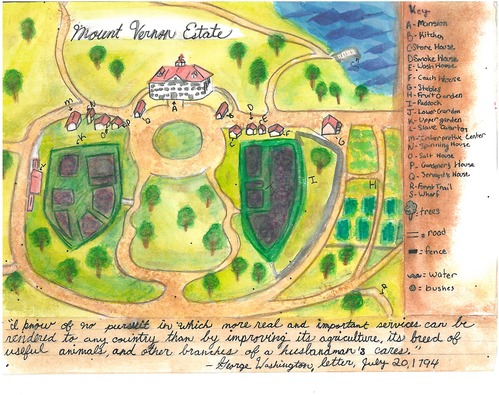 Mount Vernon Estate
Key
A- Mansion
B- Kitchen
C Store House
D Smoke House
E- Wash House
F- Coach House
G- Stables
H- Fruit Garden
I- Paddock
J- Lower Garden
K- Upper garden
L- Slave Quarters
M- Interpretive Center
N- Spinning House
O- Salt House
P- Gardeners House
Q- Servants House
R- Forest Trail
S- Wharf
= trees
= road
= fence
= water
= bushes
A
B
C
D
E
F
G
H
I
J
K
L
M
N
R
"I know of no pursuit in which more real and important services can be
rendered to any country than by improving its agriculture, its breed of
useful animals, and other branches of a husbandman's cares."
- George Washington, letter, July 20, 1794